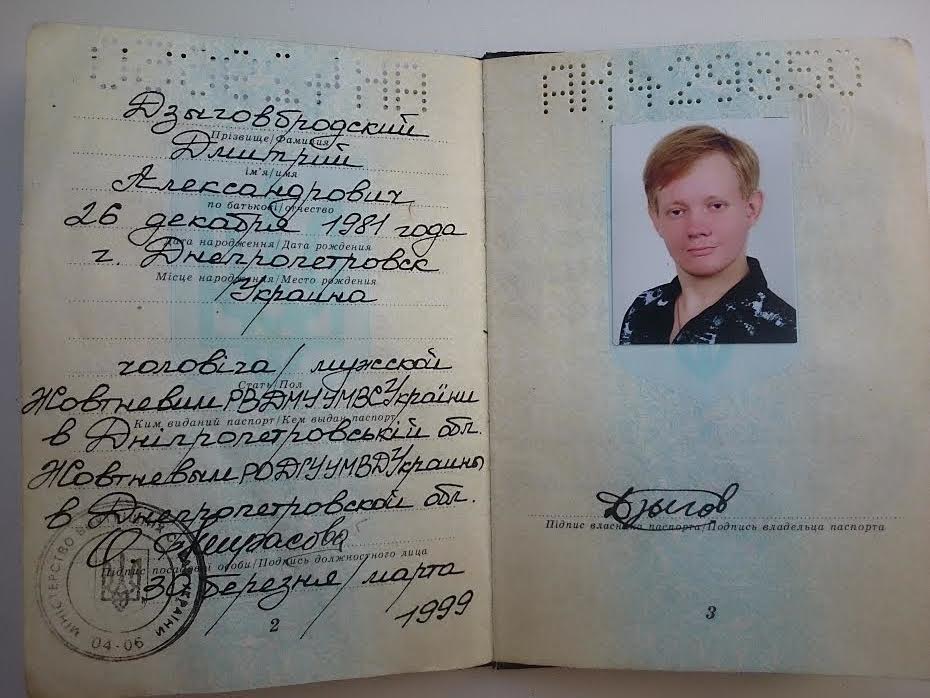 Дзыговбродский
Прізвище/Фамилия
Дмитрий
ім'я/имя
Александрович
по батькові/отчество
26 декабря 1981 года
Дата народження/Дата рождения
г. Днепропетровск
Місце народження/Место рождения
Украина
чоловіча/мужской
Стать/Пол
Жовтневим РВДМУ УМВС України
Ким виданий паспорт/Кем выдан паспорт
в Дніпропетровській обл.
Жовтневым РОДГУ УМВД Украины
в Днепропетровской обл.
Підпис посадової особи/Подпись должностного лица
30 березня/марта
1999
МІНІСТЕРСТВО СПРАВ УКРАЇНИ
04-06
2
АН429650
Дзыгов
Підпис власника паспорта/Подпись владельца паспорта
3